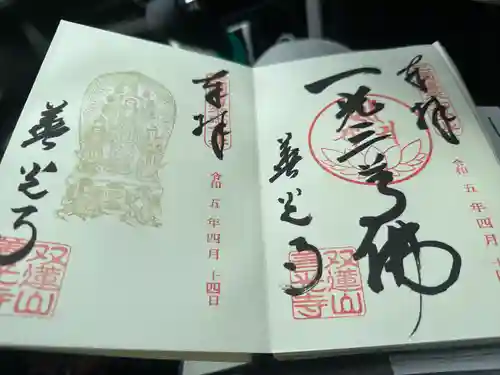 奉拝
令和五年四月十
一光三尊佛
善光寺
双蓮山
善光寺
奉拝
令和五年四月十四日
善光寺
双蓮山
善光寺